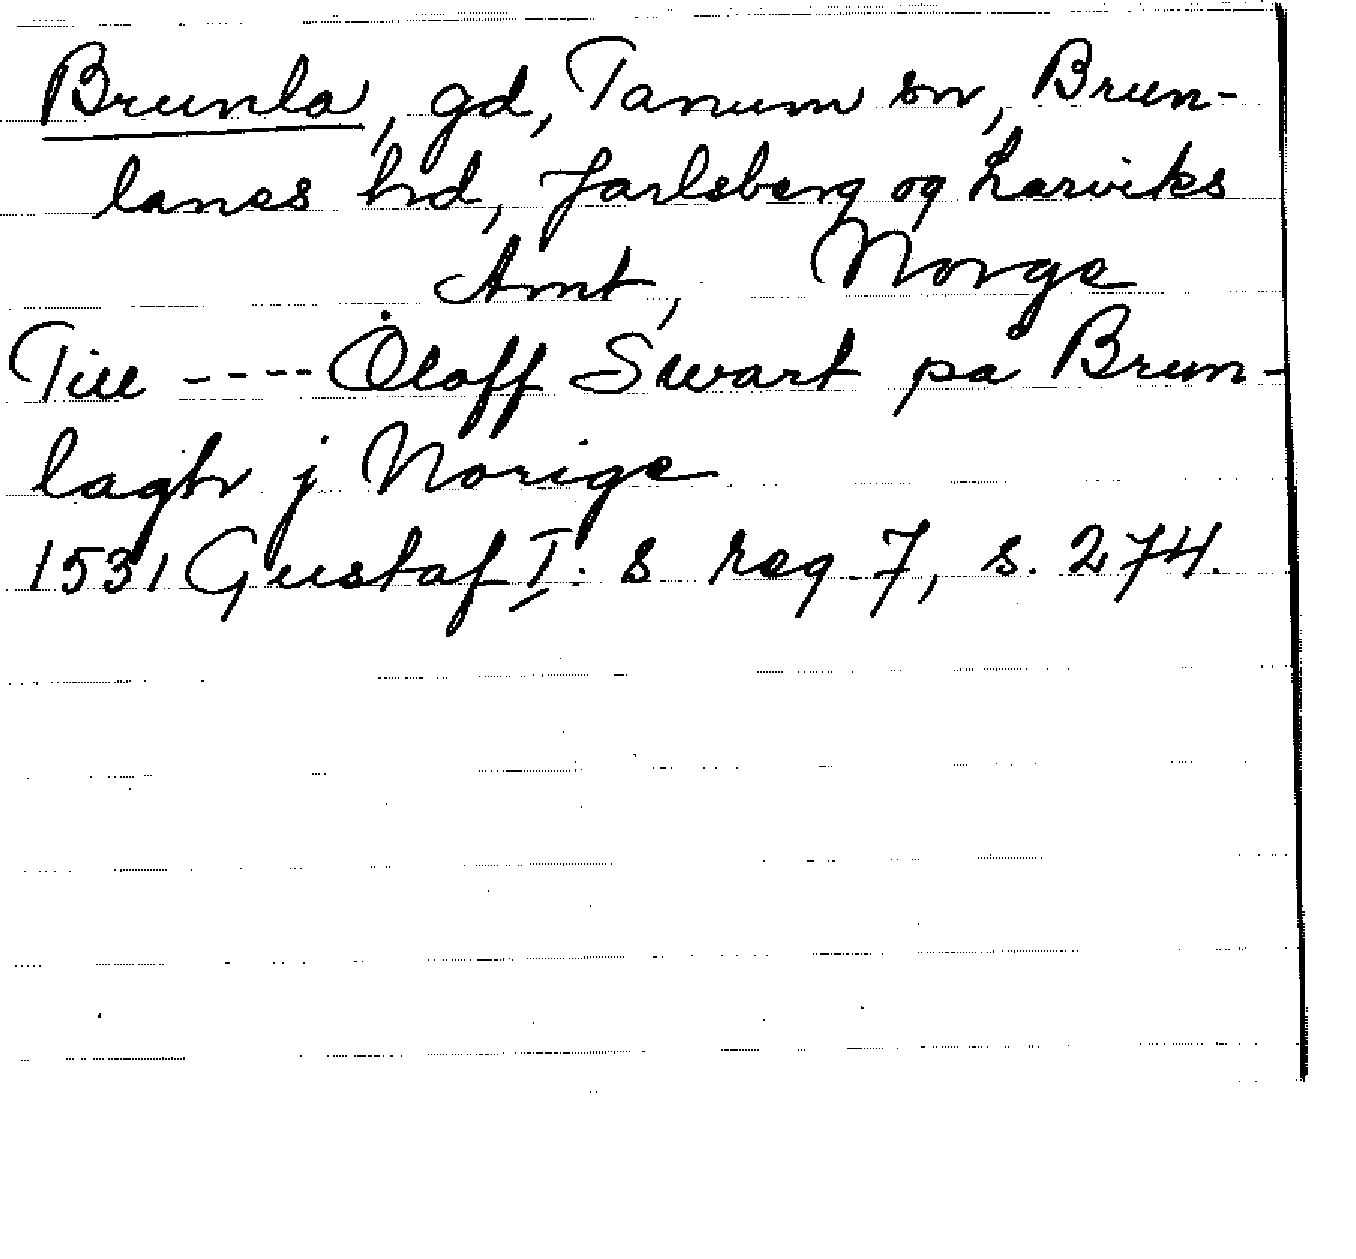 Brunla, gd, Tanum sn, Brun-
lanes hd, Jarlsberg og Larviks
Amt, Norge
Till ---- Oloff Swart på Brun-
lagh j Norige
1531 Gustaf I: s reg. 7, s. 274.